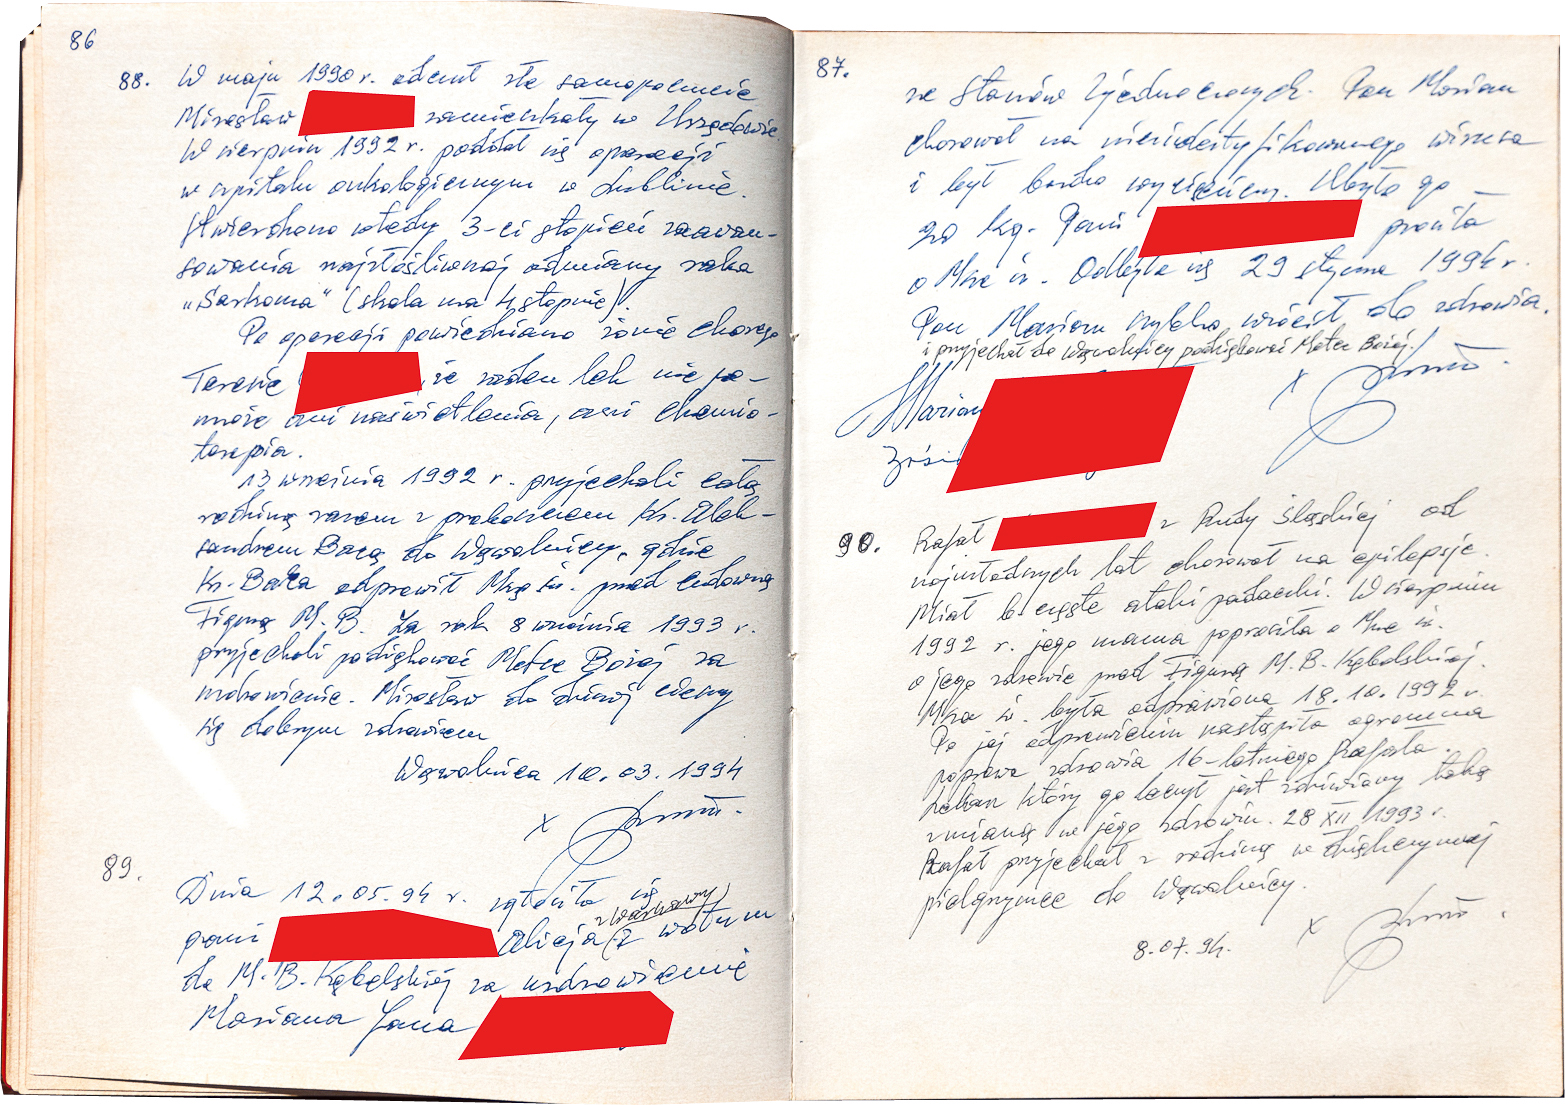 86
88. W maju 1990 r. odczuł złe samopoczucie
Mirosław zamieszkały w Urzędowie.
W sierpniu 1992 r. poddał się operacji
w szpitalu onkologicznym w Lublinie.
Stwierdzono wtedy 3-ci stopień zaawan-
sowania najzłośliwszej odmiany raka
„Sarkoma" (skala ma 4 stopnie).
Po operacji powiedziano żonie chorego
Teresie , że żaden lek nie po-
może ani naświetlenia, ani chemio-
terapia.
13 września 1992 r. przyjechali całą
rodziną razem z proboszczem Ks. Alek-
sandrem Bacą do Wąwolnicy, gdzie
Ks. Baca odprawił Mszę św. przed cudowną
Figurą M. B. Za rok 8 września 1993 r.
przyjechali podziękować Matce Bożej za
uzdrowienie. Mirosław do dzisiaj cieszy
się dobrym zdrowiem
Wąwolnica 10.03.1994
x
89.
Dnia 12.05.94 r. zgłosiła się
pani Alicja (z Warszawy) z wotum
do M.B. Kębelskiej za uzdrowienie
Mariana Jana
87.
ze Stanów Zjednoczonych. Pan Marian
chorował na niezidentyfikowanego wirusa
i był bardzo wyniszczony. Ubyło go
20 kg. Pani prosiła
o Mszę św. Odbyła się 29 stycznia 1994 r.
Pan Marian szybko wrócił do zdrowia.
i przyjechał do Wąwolnicy podziękować Matce Bożej.
x
Marian
90. Rafał z Rudy Śląskiej od
najmłodszych lat chorował na epilepsję.
Miał b. częste ataki padaczki. W sierpniu
1992 r. jego mama poprosiła o Mszę św.
o jego zdrowie przed Figurą M.B. Kębelskiej.
Msza św. była odprawiona 18.10.1992 r.
Po jej odprawieniu nastąpiła ogromna
poprawa zdrowia 16-letniego Rafała.
Lekarz który go leczył jest zdziwiony taką
zmianą w jego zdrowiu. 28 XII 1993 r.
Rafał przyjechał z rodziną w dziękczynnej
pielgrzymce do Wąwolnicy.
x
8.07.94.